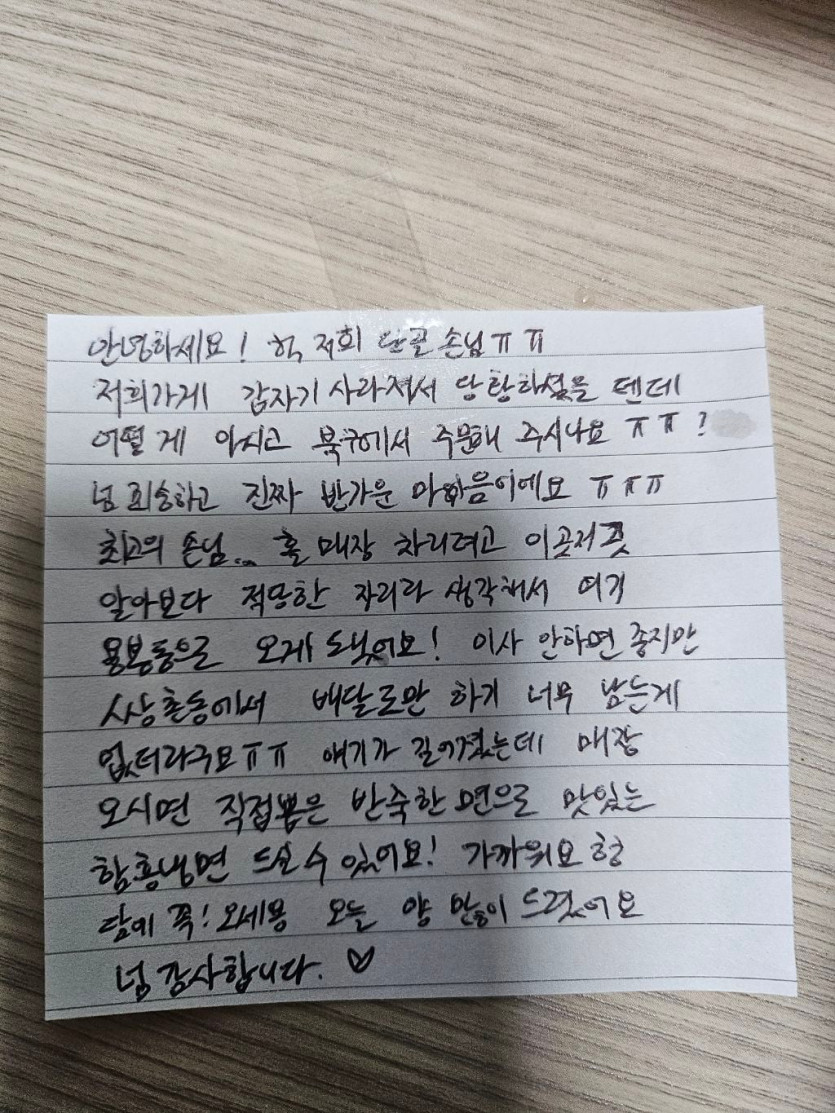 안녕하세요! 헉 저희 단골 손님ㅠㅠ
저희가게 갑자기 사라져서 당황하셨을 텐데
어떻게 아시고 북구에서 주문해 주시나요 ㅠㅠ?
넘 죄송하고 진짜 반가운 마음이에요 ㅠㅠㅠ
최고의 손님.. 홀 매장 차리려고 이곳저곳
알아보다 적당한 자리라 생각해서 여기
용봉동으로 오게 됐어요! 이사 안하면 좋지만
사상촌동에서 배달로만 하기 너무 남는게
없더라구요ㅠㅠ 얘기가 길어졌는데 매장
오시면 직접뽑은 반죽한 면으로 맛있는
함흥냉면 드실 수 있어요! 가까워요 헝
담에 꼭! 오세용 오늘 양 많이 드렸어요
넘 감사합니다. ♡